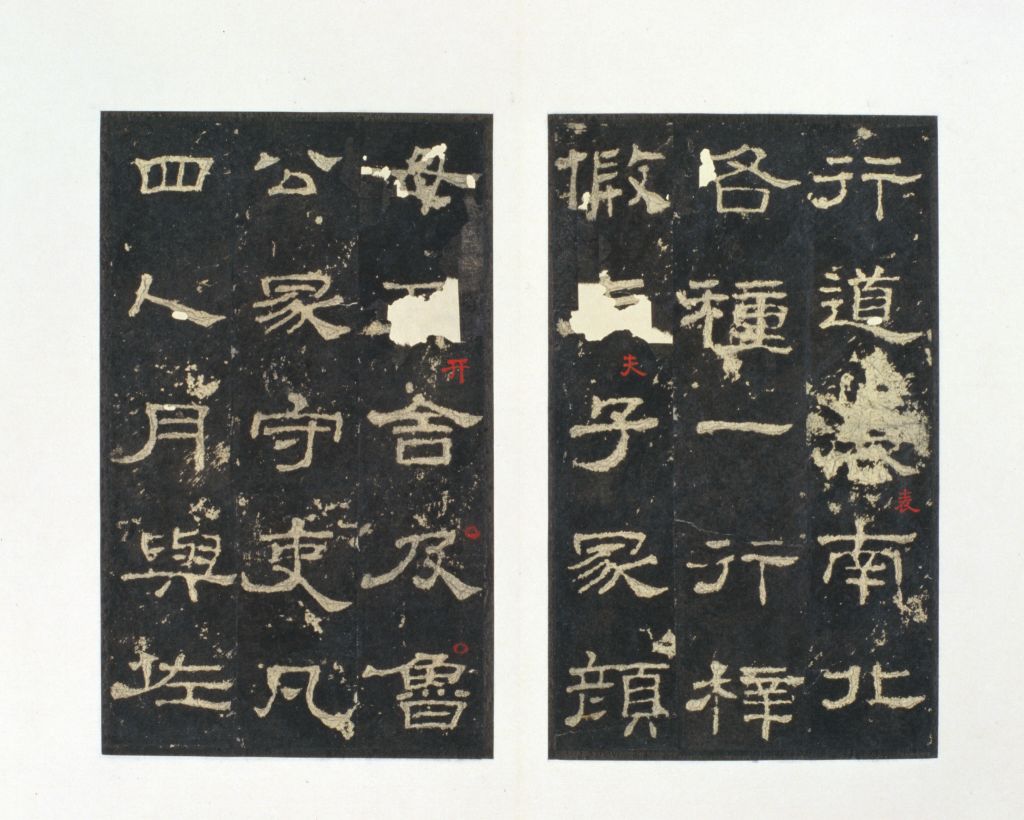 行道表南北
各種一行梓
假夫子冢顏
母开舍及魯
公冢守吏凡
四人月與佐